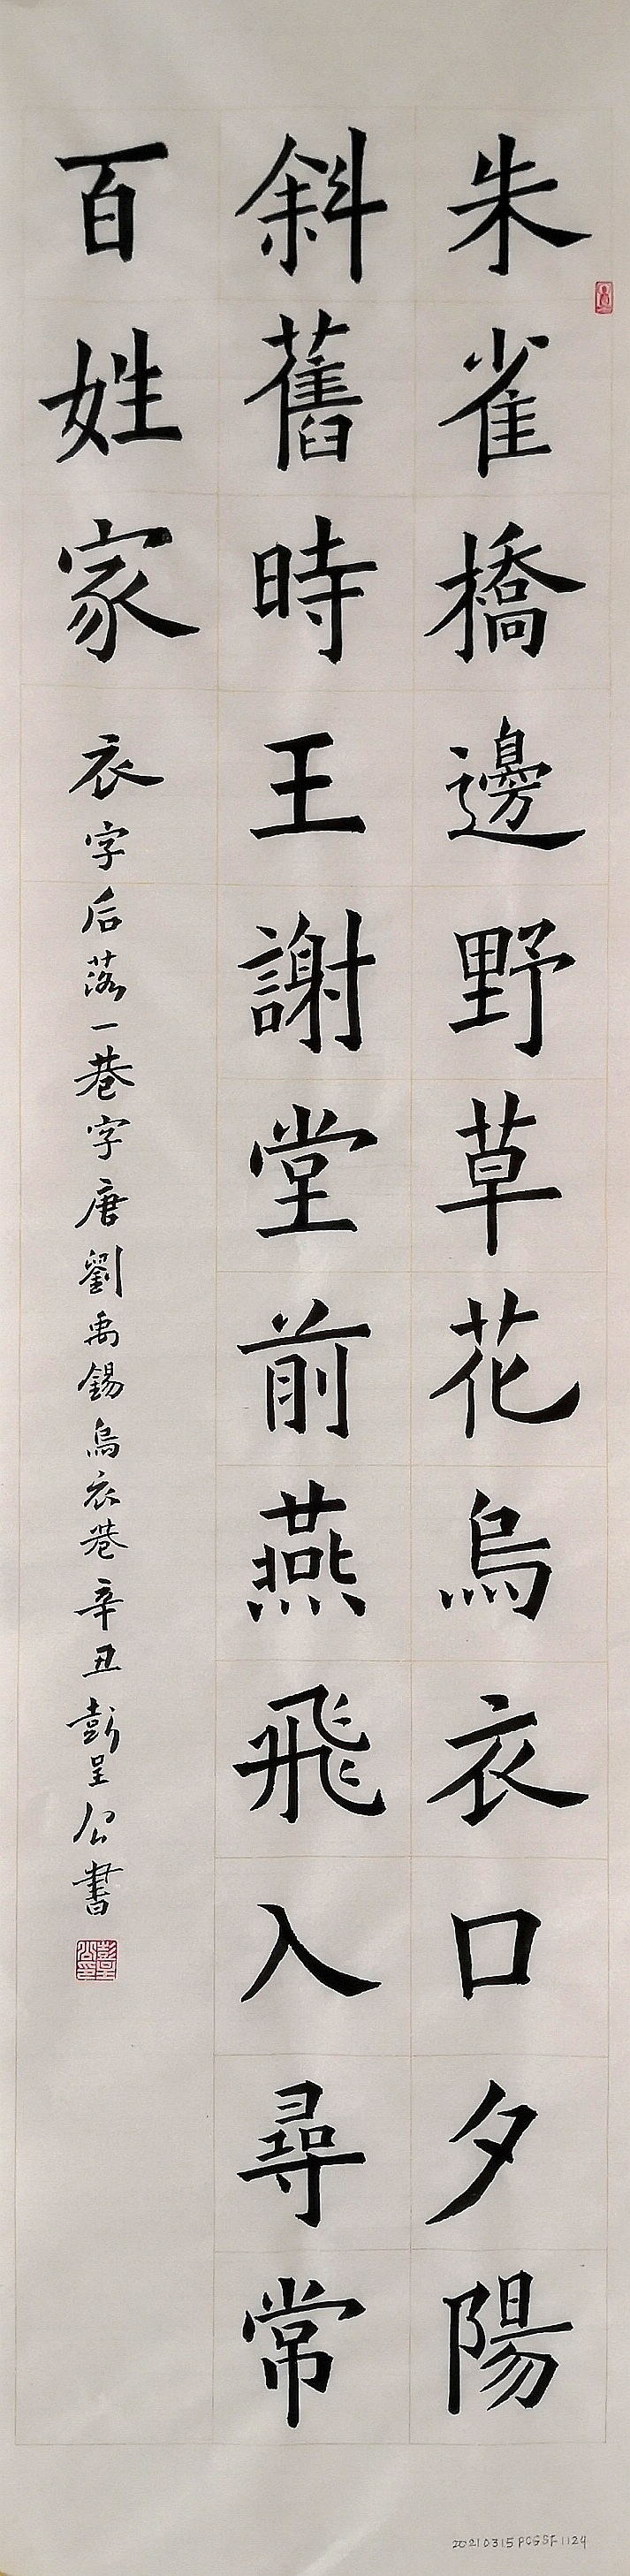 朱雀橋邊野草花烏衣口夕陽
斜舊時王謝堂前燕飛入尋常
百姓家
衣字后落一巷字唐劉禹錫烏衣巷辛丑彭呈公書
20210315PCGSF1124